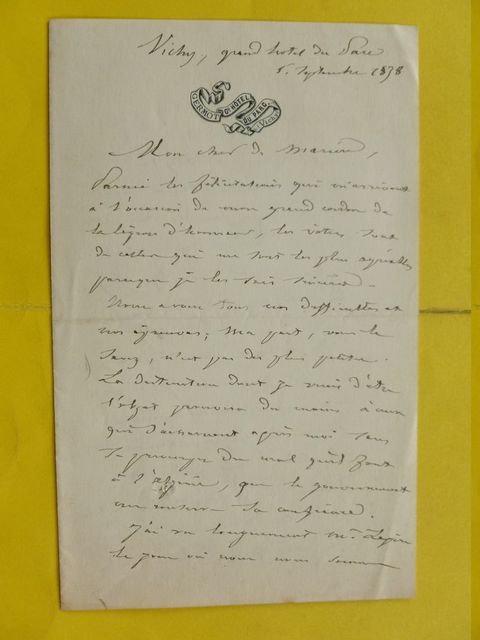 Vichy, grand hotel du Parc
5 Septembre 1878
GERMOT Gd HÔTEL DU PARC VICHY
Mon cher de
Parmi les félicitations qui m'arrivent
à l'occasion de mon grand cordon de
la légion d'honneur, les votres sont
de celles qui me sont les plus agréables
parceque je les sais sincères.
Nous avons tous nos difficultés et
nos épreuves; ma part, vous le
savez, n'est pas des plus petites.
La distinction dont je viens d'être
l'objet prouvera du moins à ceux
qui s'acharnent après moi sans
se préoccuper du mal qu'ils font
à l'Algérie, que le gouvernement
me conserve sa confiance.
J'ai vu longuement Mr
le jour où nous nous sommes